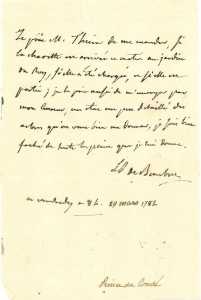 Je prie M. Thouin de me mander, si
la charette est arrivée ce matin au jardin
du Roy, si elle a été chargée, et si elle est
partie; je le prie aussi de m'envoyer par
mon coureur, un état un peu détaillé des
arbres qu'on veut bien me donner, je suis bien
faché de toute la peine que je lui donne.
LJ de Bourbon
ce vendredy a 8 h. 29 mars 1782
Prince de Condé